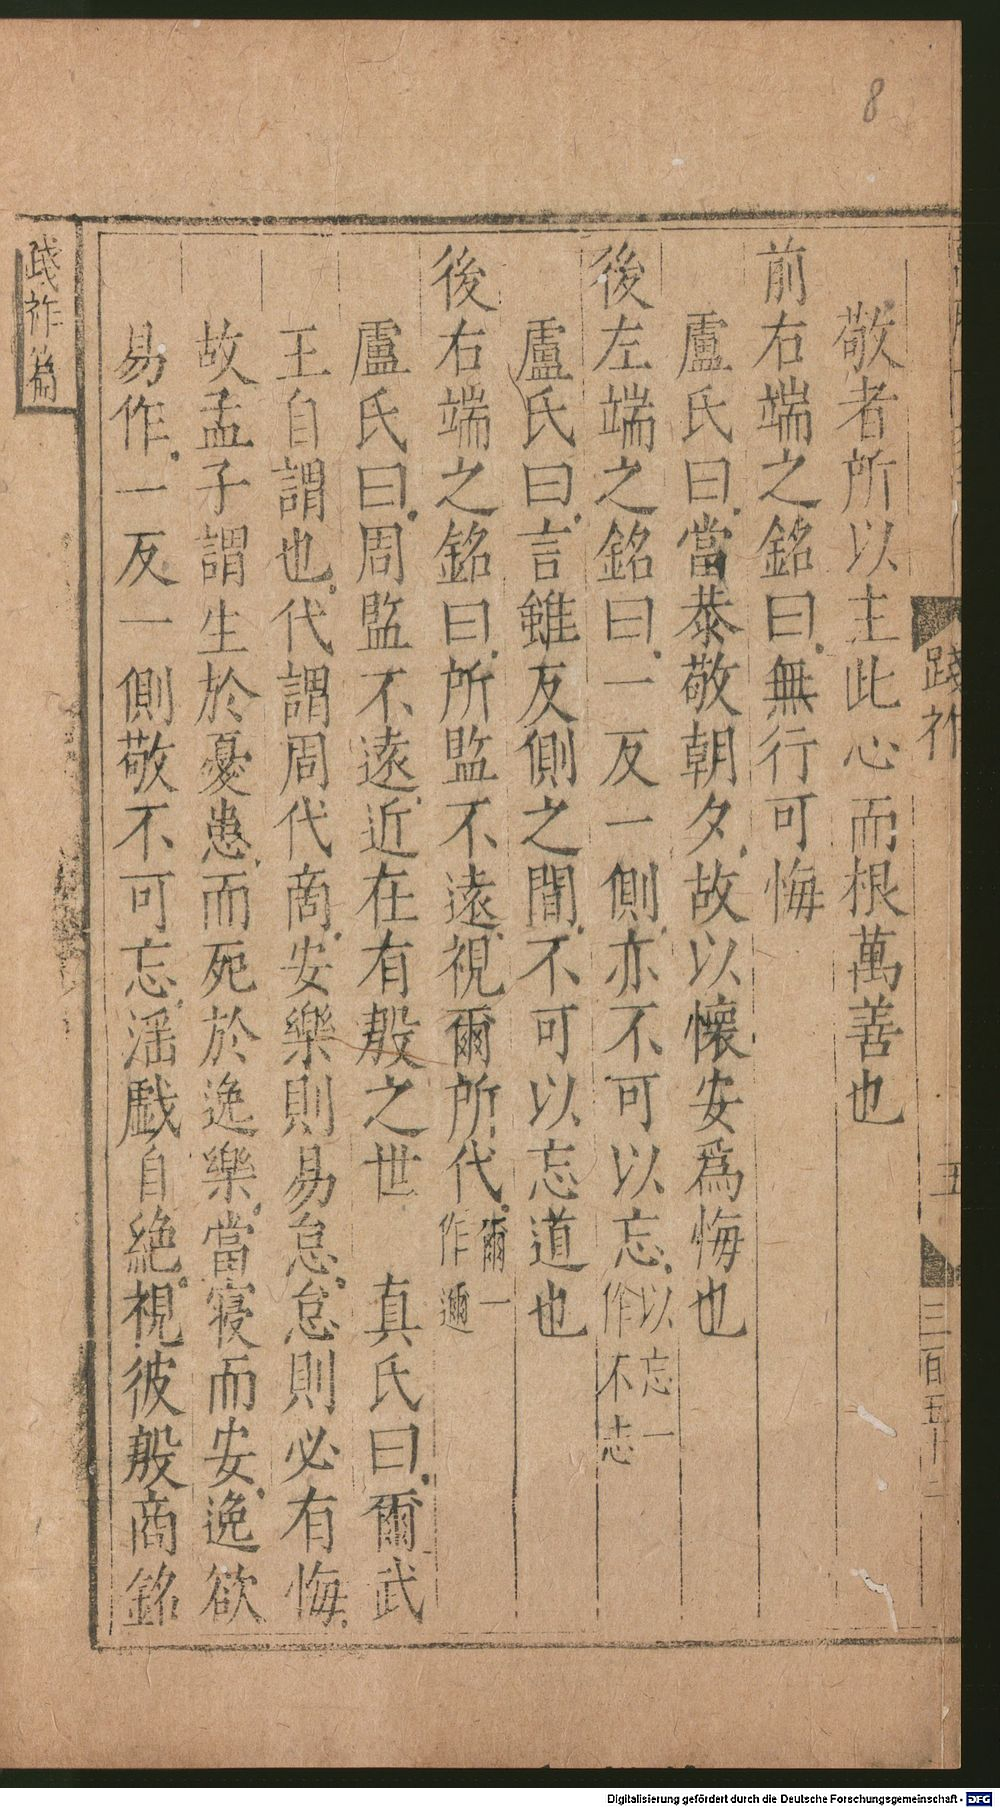 8
踐阼
五
三百五十二
敬者所以主此心而根萬善也
前右端之銘曰無行可悔
盧氏曰當恭敬朝夕故以懷安爲悔也
後左端之銘曰一反一側亦不可以忘以忘一作不志
盧氏曰言雖反側之間不可以忘道也
後右端之銘曰所監不遠視爾所代爾一作邇
盧氏曰周監不遠近在有殷之世 真氏曰爾武
王自謂也代謂周代商安樂則易怠怠則必有悔
故孟子謂生於憂患而死於逸樂當寢而安逸欲
易作一反一側敬不可忘滛戲自絶視彼殷商銘
踐阼篇
Digitalisierung gefördert durch die Deutsche Forschungsgemeinschaft - DFG